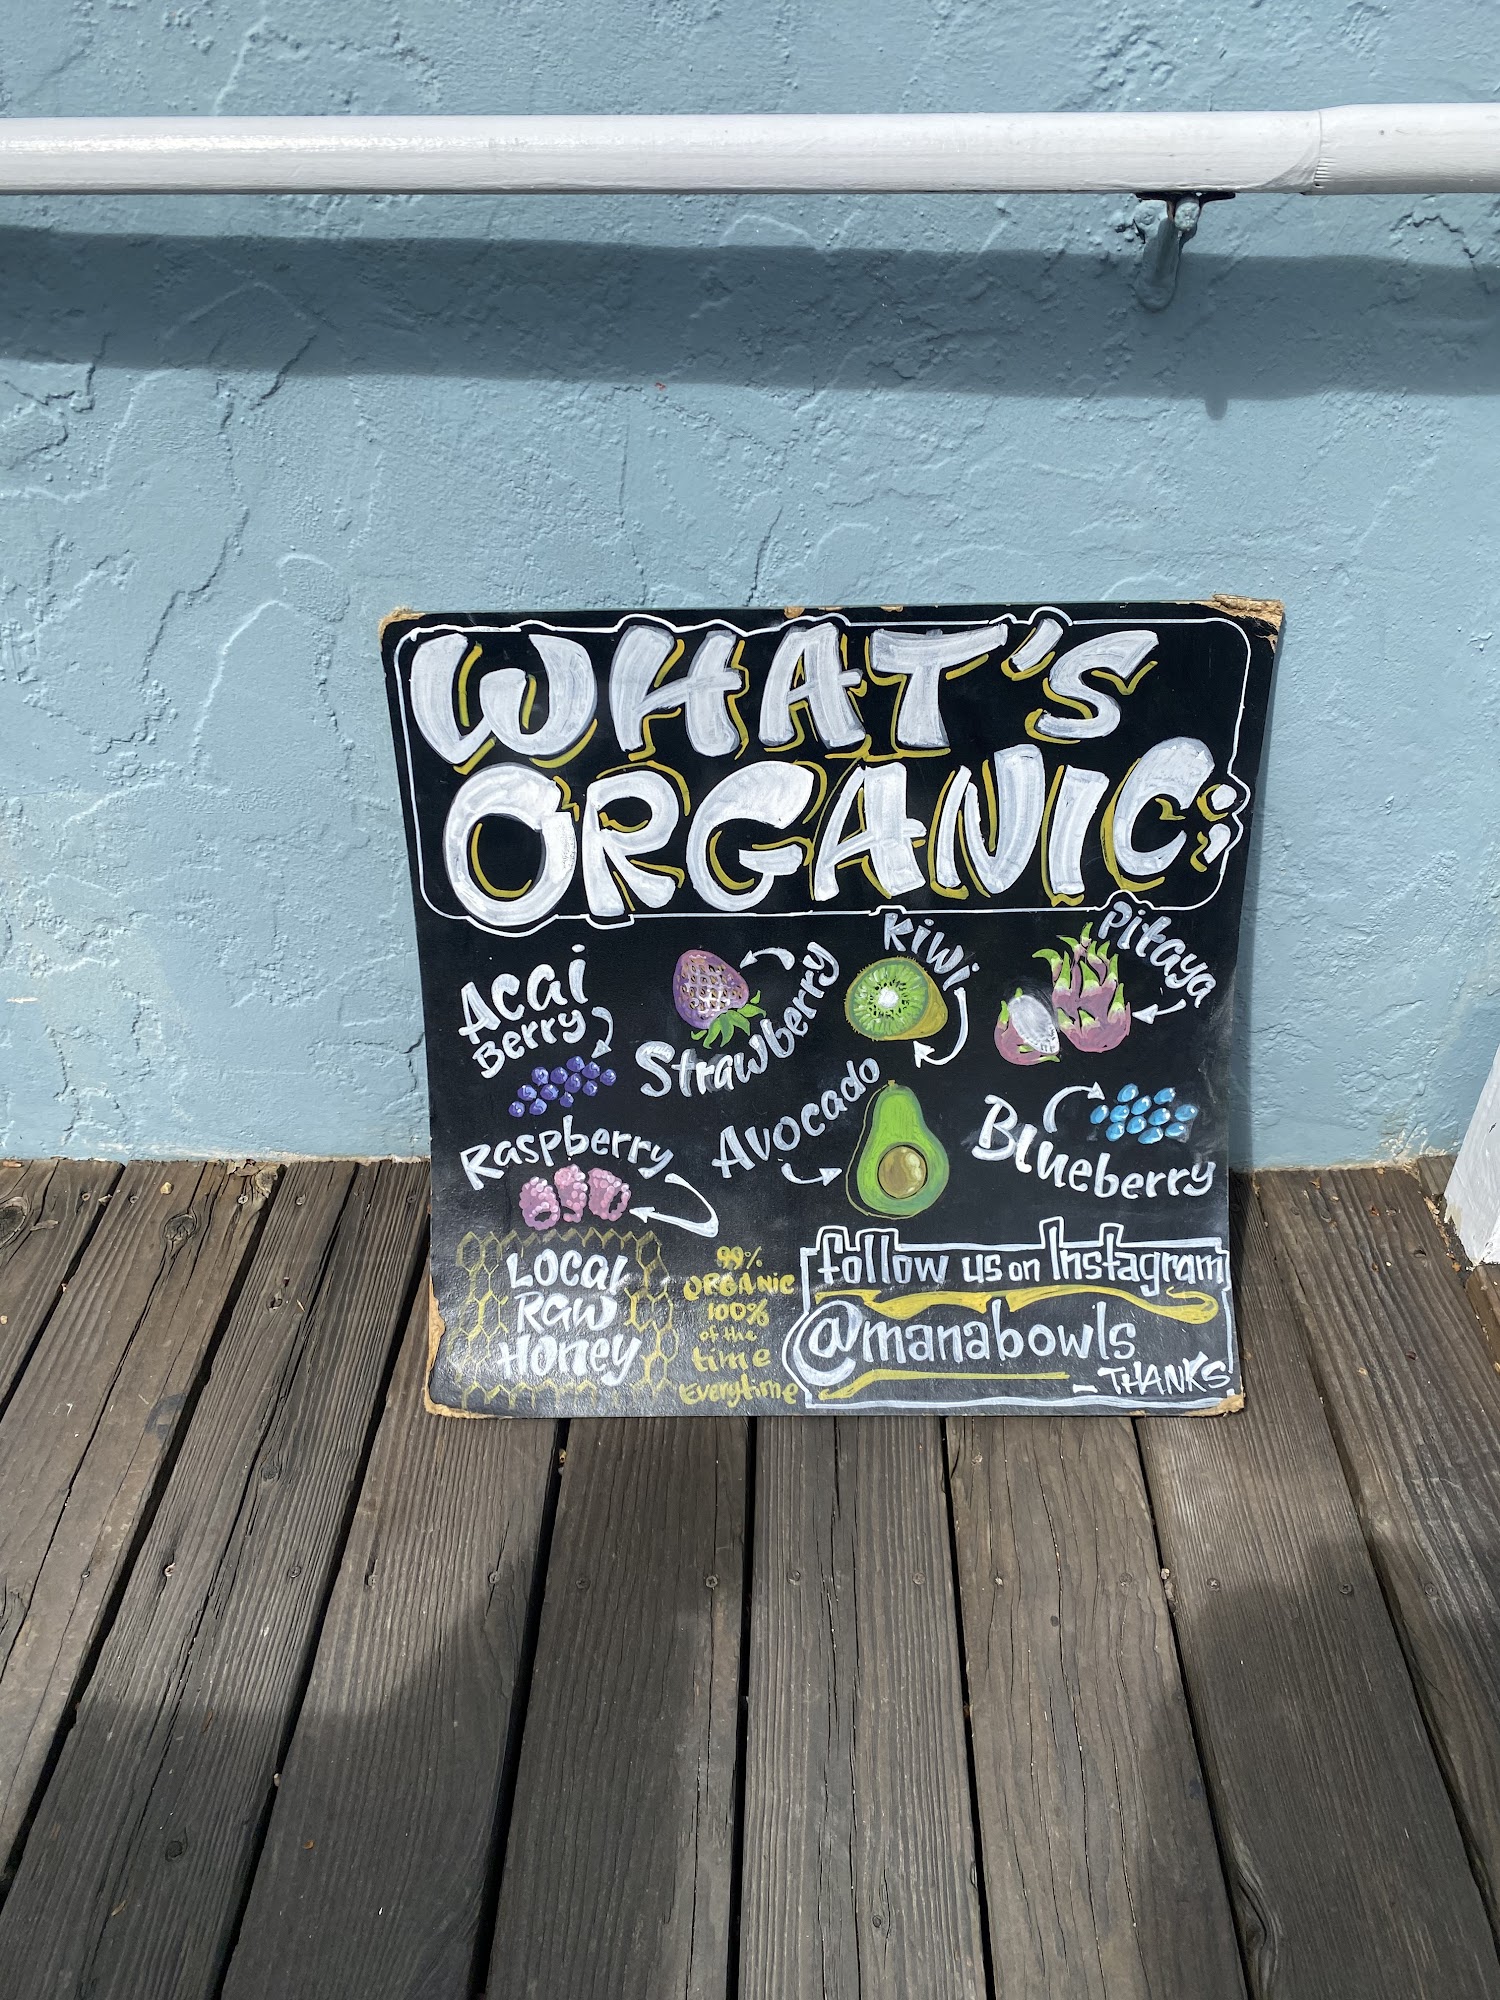 WHAT'S
ORGANIC;
Acai
Berry
Strawberry
Kiwi
Pitaya
Raspberry
Avocado
Blueberry
LOCAL
RAW
Honey
99%
ORGANIC
100%
of the
time
Everytime
follow us on Instagram
@manabowls
- THANKS